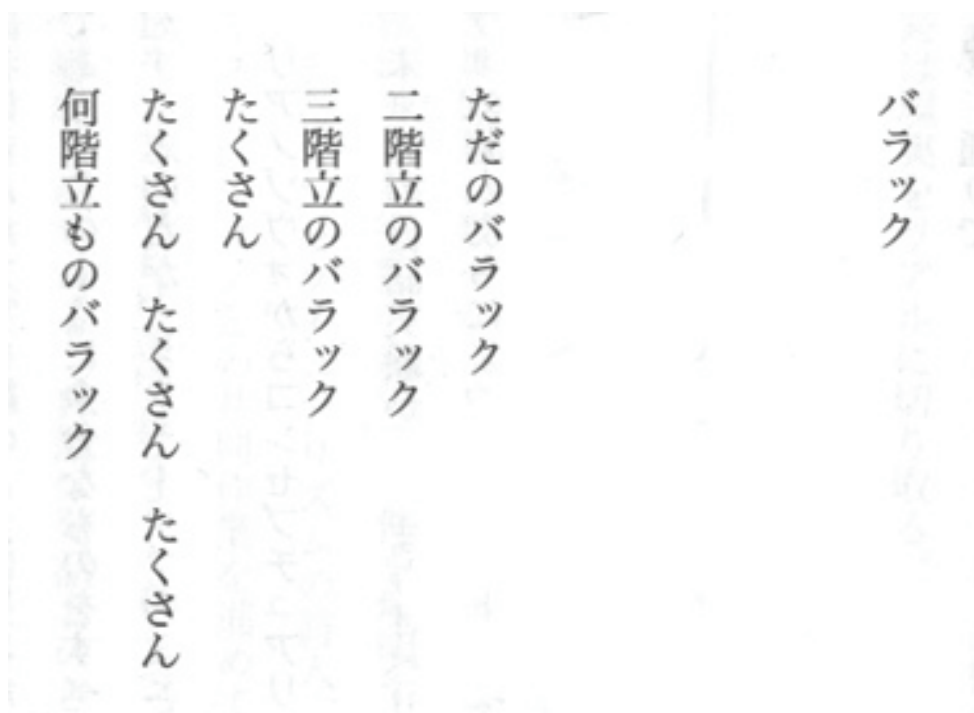 バラック
ただのバラック
二階立のバラック
三階立のバラック
たくさん
たくさん　たくさん　たくさん
何階立ものバラック